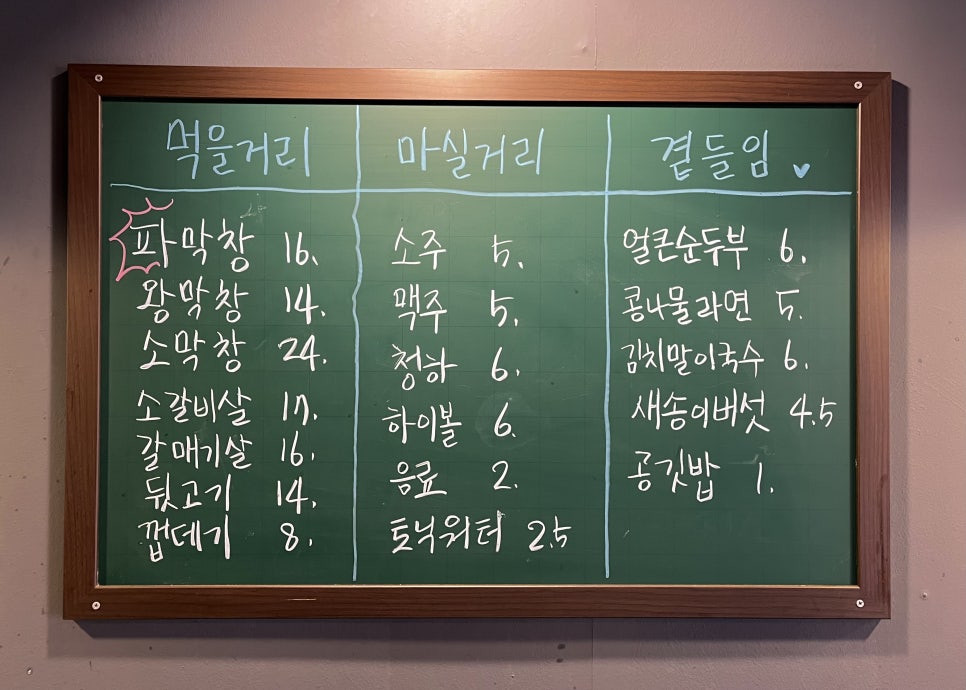 먹을거리
파막창 16.
왕막창 14.
소막창 24.
소갈비살 17.
갈매기살 16.
뒷고기 14.
껍데기 8.
마실거리
소주 5.
맥주 5.
청하 6.
하이볼 6.
음료 2.
토닉워터 2.5
곁들임 ♥
얼큰순두부 6.
콩나물라면 5.
김치말이국수 6.
새송이버섯 4.5
공깃밥 1.